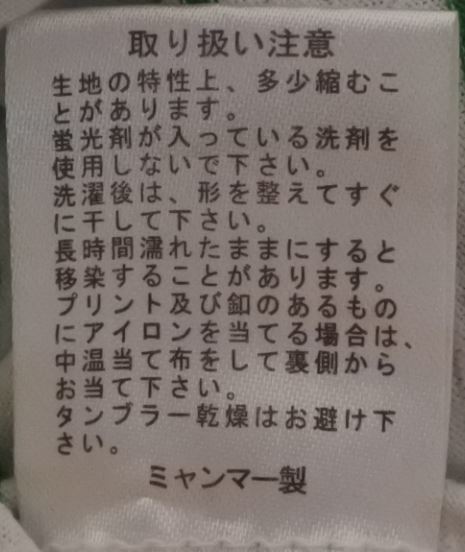 取り扱い注意
生地の特性上、多少縮むこ
とがあります。
蛍光剤が入っている洗剤を
使用しないで下さい。
洗濯後は、形を整えてすぐ
に干して下さい。
長時間濡れたままにすると
移染することがあります。
プリント及び釦のあるもの
にアイロンを当てる場合は、
中温当て布をして裏側から
お当て下さい。
タンブラー乾燥はお避け下
さい。
ミャンマー製